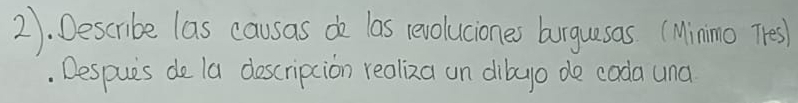 2). Describe las causas de las revoluciones burguesas. (Minimo Tres)
. Después de la descripción realiza un dibujo de cada una.